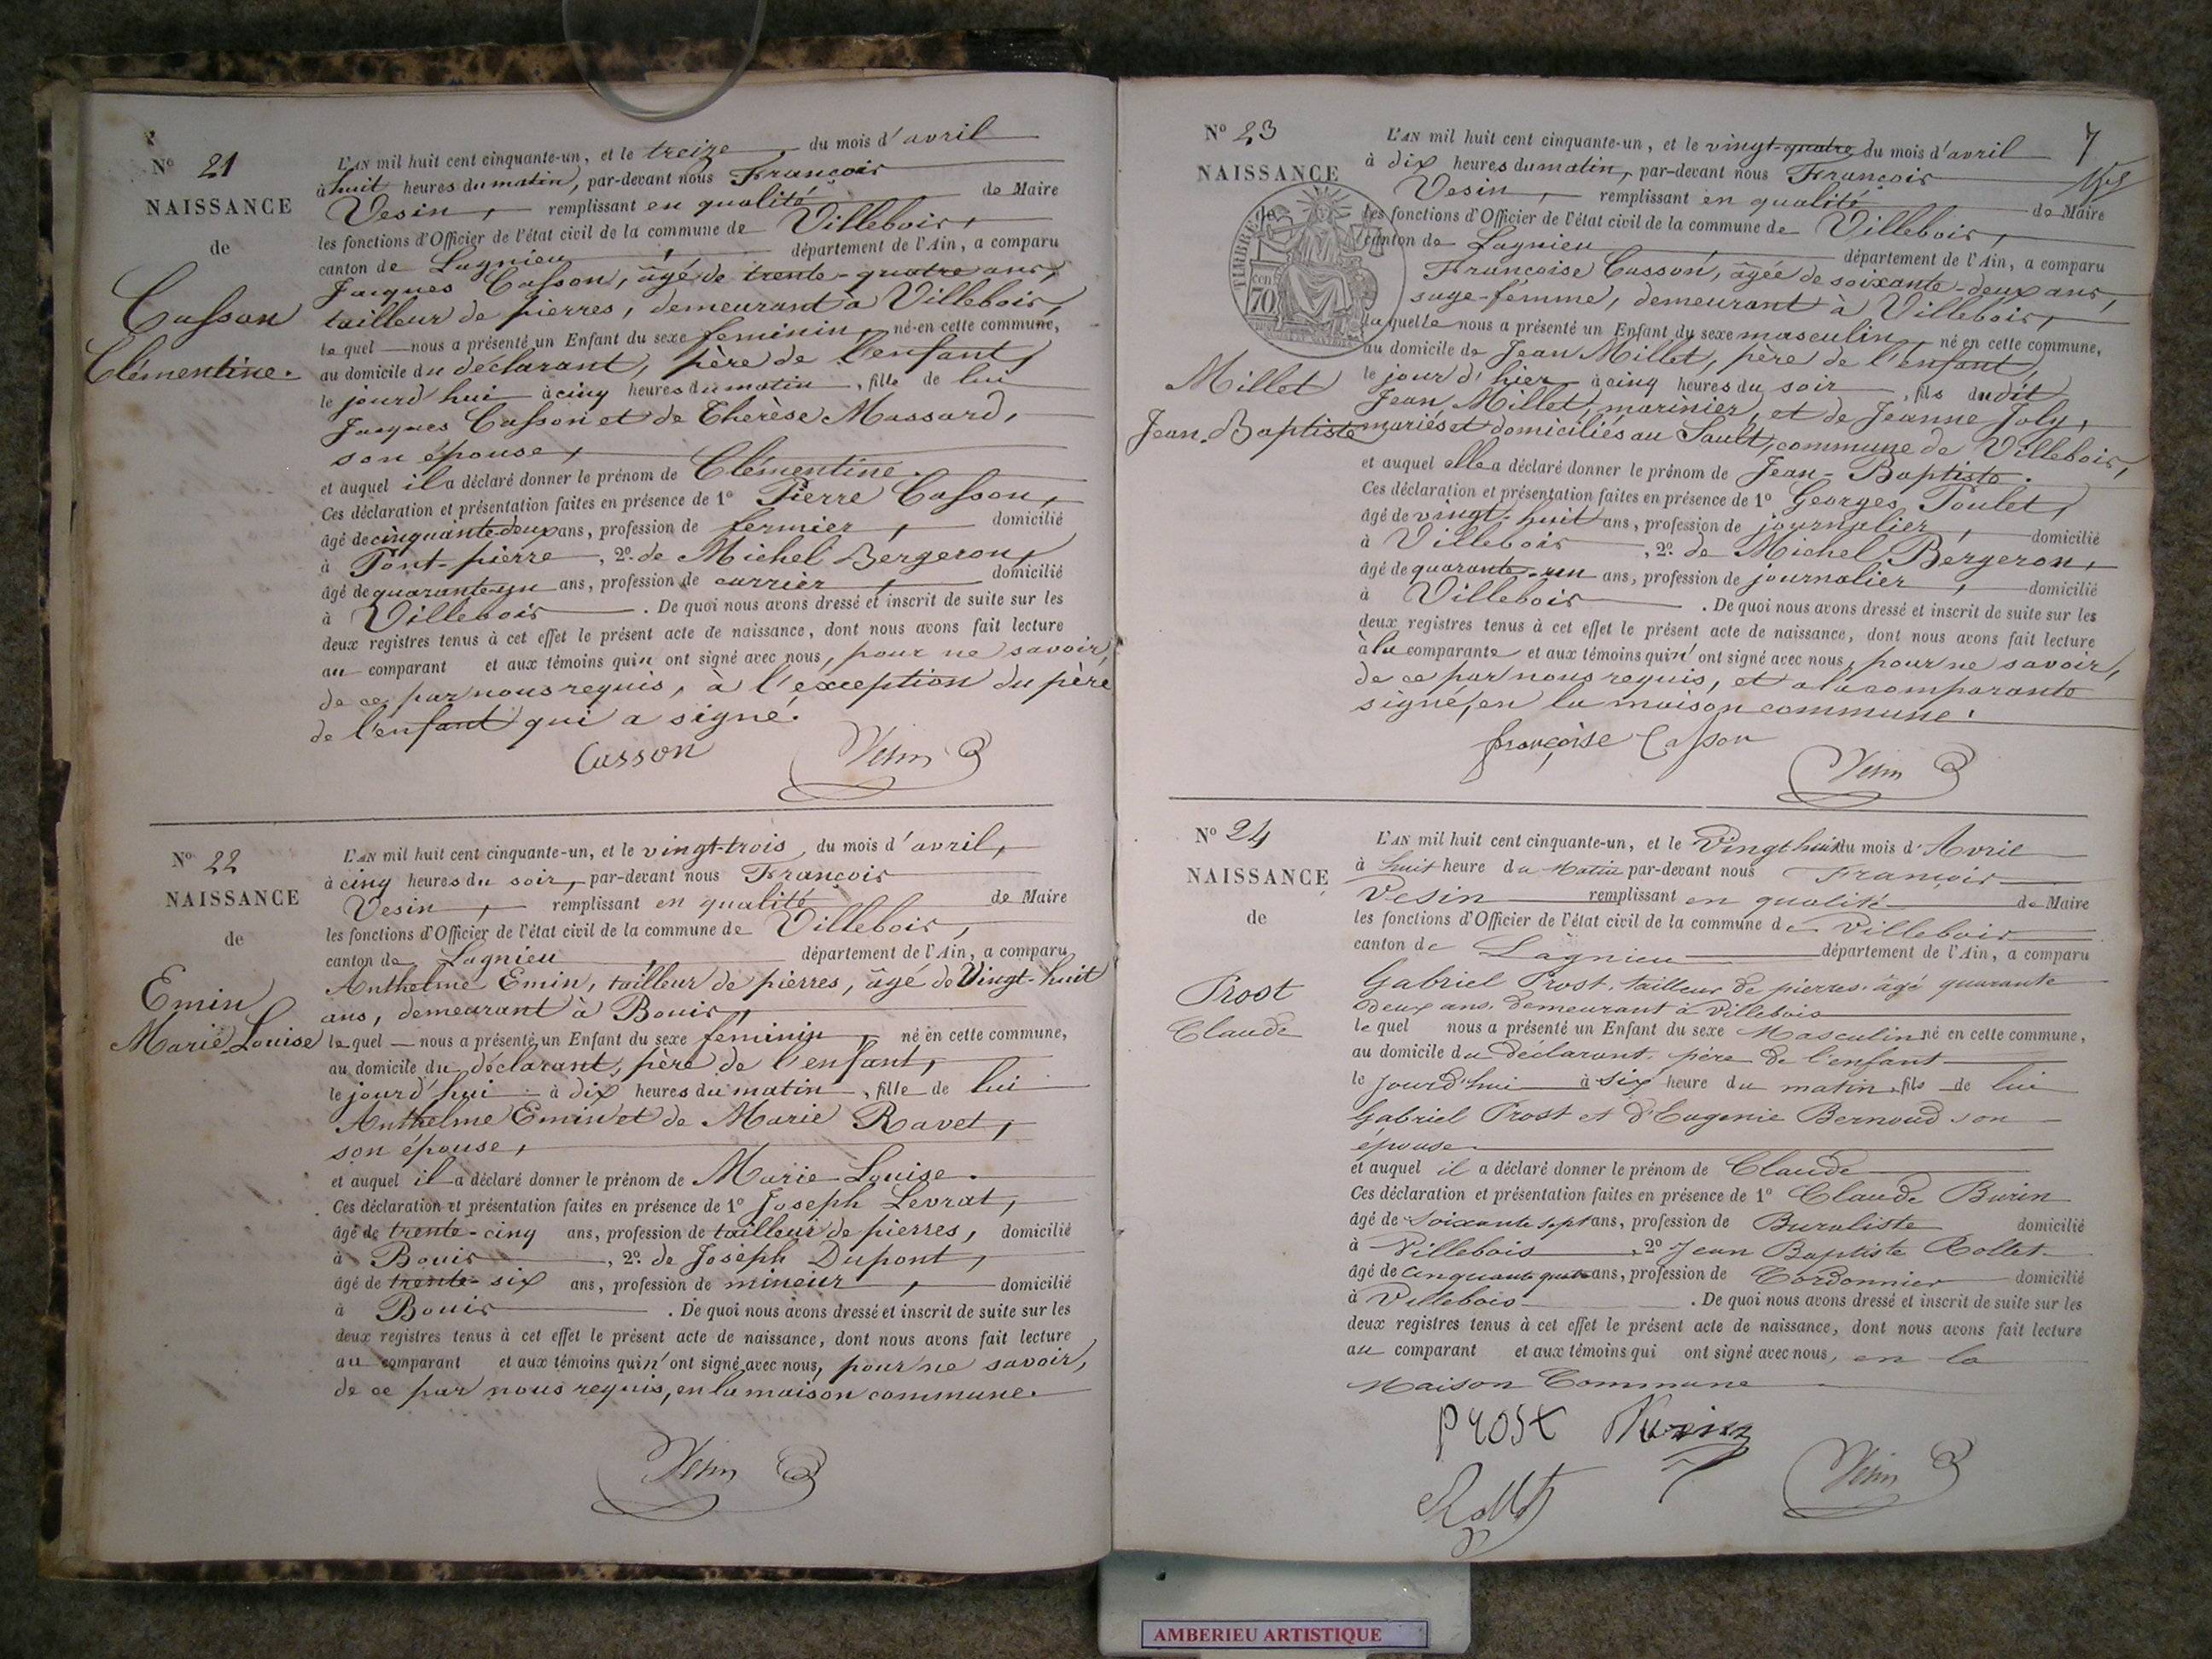 N° 21
NAISSANCE
de
Casson
Clémentine.
L'AN mil huit cent cinquante-un, et le treize, du mois d'avril
à huit heures du matin, par-devant nous François
Vesin, remplissant en qualité de Maire
les fonctions d'Officier de l'état civil de la commune de Villebois,
canton de Lagnieu, département de l'Ain, a comparu
Jacques Casson, âgé de trente-quatre ans,
tailleur de pierres, demeurant à Villebois,
lequel nous a présenté un Enfant du sexe feminin, né en cette commune,
au domicile du déclarant, père de l'enfant,
le jourd'hui à cinq heures du matin, fille de lui
Jacques Casson et de Thérèse Massard,
son épouse,
et auquel il a déclaré donner le prénom de Clémentine.
Ces déclaration et présentation faites en présence de 1° Pierre Casson,
âgé de cinquante deux ans, profession de fermier, domicilié
à Pont-pierre, 2° de Michel Bergeron,
âgé de quarante-un ans, profession de carrier, domicilié
à Villebois. De quoi nous avons dressé et inscrit de suite sur les
deux registres tenus à cet effet le présent acte de naissance, dont nous avons fait lecture
au comparant et aux témoins qui n'ont signé avec nous, pour ne savoir,
de ce par nous requis, à l'exception du père
de l'enfant qui a signé.
Casson Vesin
N° 22
NAISSANCE
de
Emin
Marie-Louise
L'AN mil huit cent cinquante-un, et le vingt-trois, du mois d'avril,
à cinq heures du soir, par-devant nous François
Vesin, remplissant en qualité de Maire
les fonctions d'Officier de l'état civil de la commune de Villebois,
canton de Lagnieu, département de l'Ain, a comparu
Anthelme Emin, tailleur de pierres, âgé de Vingt-huit
ans, demeurant à Bouis,
lequel nous a présenté un Enfant du sexe feminin, né en cette commune,
au domicile du déclarant, père de l'enfant,
le jourd'hui à dix heures du matin, fille de lui
Anthelme Emin et de Marie Ravet,
son épouse,
et auquel il a déclaré donner le prénom de Marie-Louise.
Ces déclaration et présentation faites en présence de 1° Joseph Levrat,
âgé de trente-cinq ans, profession de tailleur de pierres, domicilié
à Bouis, 2° de Joseph Dupont,
âgé de trente-six ans, profession de mineur, domicilié
à Bouis. De quoi nous avons dressé et inscrit de suite sur les
deux registres tenus à cet effet le présent acte de naissance, dont nous avons fait lecture
au comparant et aux témoins qui n'ont signé avec nous, pour ne savoir,
de ce par nous requis, en la maison commune.
Vesin
7
N° 23
NAISSANCE
TIMBRE
70
Millet
Jean-Baptiste
L'AN mil huit cent cinquante-un, et le vingt-quatre du mois d'avril
à dix heures du matin, par-devant nous François
Vesin, remplissant en qualité de Maire
les fonctions d'Officier de l'état civil de la commune de Villebois,
canton de Lagnieu département de l'Ain, a comparu
Françoise Casson, âgée de soixante-deux ans,
sage-femme, demeurant à Villebois,
laquelle nous a présenté un Enfant du sexe masculin, né en cette commune,
au domicile de Jean Millet, père de l'enfant,
le jour d'hier à cinq heures du soir, fils du dit
Jean Millet, marinier, et de Jeanne Joly,
mariés et domiciliés au Sault, commune de Villebois,
et auquel elle a déclaré donner le prénom de Jean-Baptiste.
Ces déclaration et présentation faites en présence de 1° Georges Poulet,
âgé de vingt-huit ans, profession de journalier, domicilié
à Villebois, 2° de Michel Bergeron,
âgé de quarante-un ans, profession de journalier, domicilié
à Villebois. De quoi nous avons dressé et inscrit de suite sur les
deux registres tenus à cet effet le présent acte de naissance, dont nous avons fait lecture
à la comparante et aux témoins qui n'ont signé avec nous, pour ne savoir,
de ce par nous requis, et a la comparante
signé, en la maison commune.
françoise Casson
Vesin
N° 24
NAISSANCE
de
Prost
Claude
L'AN mil huit cent cinquante-un, et le Vingt huit du mois d'Avril
à huit heure du Matin par-devant nous François
Vesin remplissant en qualité de Maire
les fonctions d'Officier de l'état civil de la commune de Villebois
canton de Lagnieu département de l'Ain, a comparu
Gabriel Prost, tailleur de pierres, âgé quarante
deux ans, demeurant à Villebois
lequel nous a présenté un Enfant du sexe Masculin né en cette commune,
au domicile du déclarant, père de l'enfant
le jourd'hui à six heure du matin, fils de lui
Gabriel Prost et d'Eugenie Bernoud son
épouse
et auquel il a déclaré donner le prénom de Claude
Ces déclaration et présentation faites en présence de 1° Claude Burin
âgé de Soixante sept ans, profession de Buraliste domicilié
à Villebois, 2° Jean Baptiste Rollet
âgé de Cinquante quatre ans, profession de Cordonnier domicilié
à Villebois. De quoi nous avons dressé et inscrit de suite sur les
deux registres tenus à cet effet le présent acte de naissance, dont nous avons fait lecture
au comparant et aux témoins qui ont signé avec nous, en la
Maison Commune
Prost Burin
Rollet Vesin
AMBERIEU ARTISTIQUE